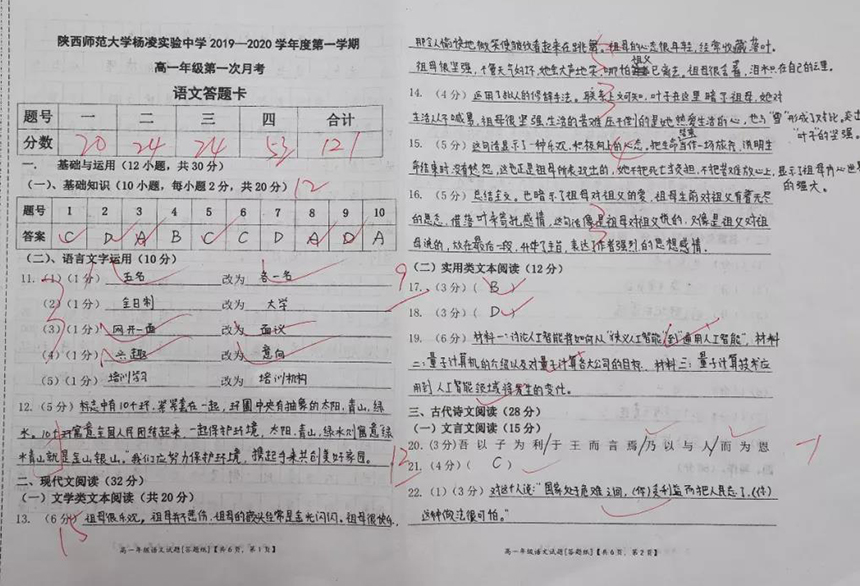 陕西师范大学杨凌实验中学 2019—2020 学年度第一学期
高一年级第一次月考
语文答题卡
题号 一 二 三 四 合计
分数 20 24 24 53 121
一. 基础与运用(12 小题,共 30 分)
(一)、基础知识(10 小题,每小题 2 分,共 20 分) 12
题号 1 2 3 4 5 6 7 8 9 10
答案 C D A B C C D A D A
(二)、语言文字运用(10 分)
11.(1)(1 分) 五名 改为 各一名 9
(2)(1 分) 全日制 改为 大学
(3)(1 分) 网开一面 改为 面议
(4)(1 分) 兴趣 改为 意向
(5)(1 分) 培训学习 改为 培训机构
12.(5 分)标志中有10个环,紧紧套在一起,环圈中央有抽象的太阳,青山,绿
水。10个环寓意全国人民团结起来,一起保护环境,太阳,青山,绿水则寓意绿
水青山就是金山银山。"我们应努力保护环境,携起手来共创美好家园。
二、现代文阅读(32 分)
(一)文学类文本阅读(共 20 分)
13.(6 分)祖母很乐观,祖母并不悲伤,祖母的额头经常是金光闪闪。祖母很快乐,
15
高一年级语文试题[答题纸]【共 6 页,第 1 页】
祖母的心态很年轻,经常收藏落叶。
祖母很坚强,
14.(4 分)运用了拟人的修辞手法。联系上文可知,叶子在这里暗示祖母,她对
生活从不喊累,祖母很坚强,生活的苦难压不倒的是她热爱生活的心,也与"雪"形成了对比,突出
"叶子"的坚强。
15.(5 分)这句话显示了一种乐观,积极向上的心态,把生命当作一场旅行,说明生
命结束时没有怨,这也正是祖母所表现出的,她不把死亡当负担,不把苦难放心上,显示了祖母内心世界
的强大。
16.(5 分)总结全文。也暗示了祖母对祖父的爱,祖母生前对祖父有着无尽
的思念,借落叶来寄托感情,这句话像是祖母对祖父说的,又像是祖父对祖
母说的,放在最后一段,升华了主旨,表达了作者强烈的思想感情。
(二)实用类文本阅读(12 分)
17.(3 分)( B )
18.(3 分)( D )
19.(6 分)材料一:讨论人工智能将如何从"狭义人工智能"到"通用人工智能",材料
二:量子计算机的介绍以及对量子计算各大公司的目标. 材料三:量子计算技术应
用到人工智能领域将发生的变化。
三、古代诗文阅读(28 分)
(一)文言文阅读(15 分)
20.(3分)吾 以 子 为 利/于 王 而 言 焉/乃 以 与 人/而 为 恩
21.(4 分)( C )
22.(1)(3 分)对这个人说:"国家处于危难之间,(你)受利益而把人民忘了,(你)
这种做法很可怕。"
高一年级语文试题[答题纸]【共 6 页,第 2 页】